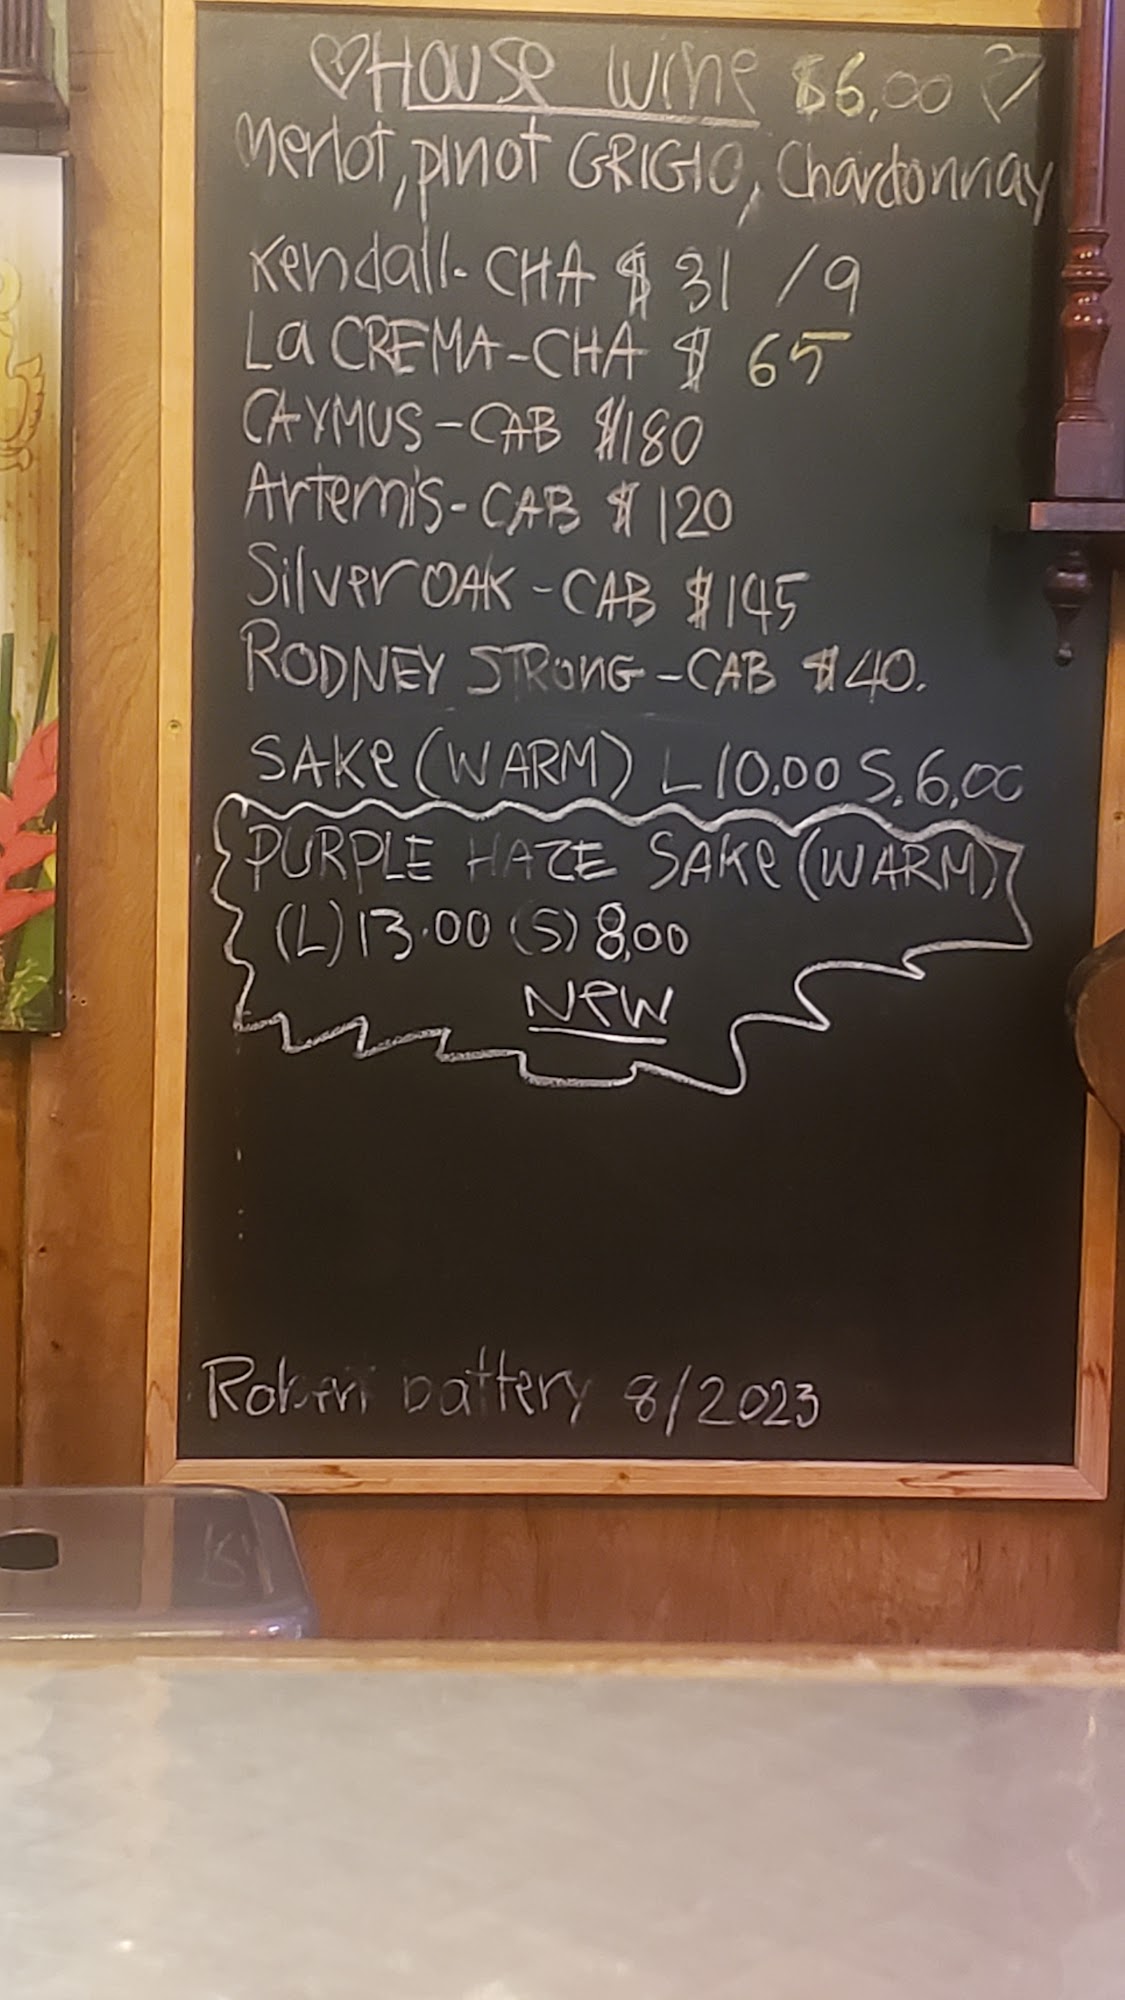 ♡ House Wine $6.00 ♡
Merlot, pinot GRIGIO, Chardonnay
Kendall - CHA $ 31 / 9
La CREMA - CHA $ 65
CAYMUS - CAB $180
Artemis - CAB $ 120
Silver OAK - CAB $145
RODNEY STRONG - CAB $40.
SAKe (WARM) L 10.00 S. 6.00
PURPLE HAZE SAKe (WARM)
(L) 13.00 (S) 8.00
New
battery 8/2023